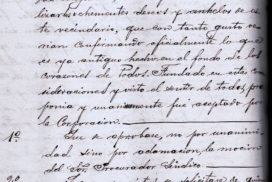 lizar los vehementes deseos y anhelos de es-
te vecindario, que con tanto gusto ve-
rian confirmando oficialmente lo que
es ya antiguo hecho en el fondo de los
corazones de todos. Fundado en estas con-
sideraciones y visto el sentir de todos, pro-
ponia y unanimemente fué aceptado por
la Corporacion.
1º Que se aprobase, no por unanimi-
dad sino por aclamacion, la mocion
del Sor. Procurador Sindico.
2º